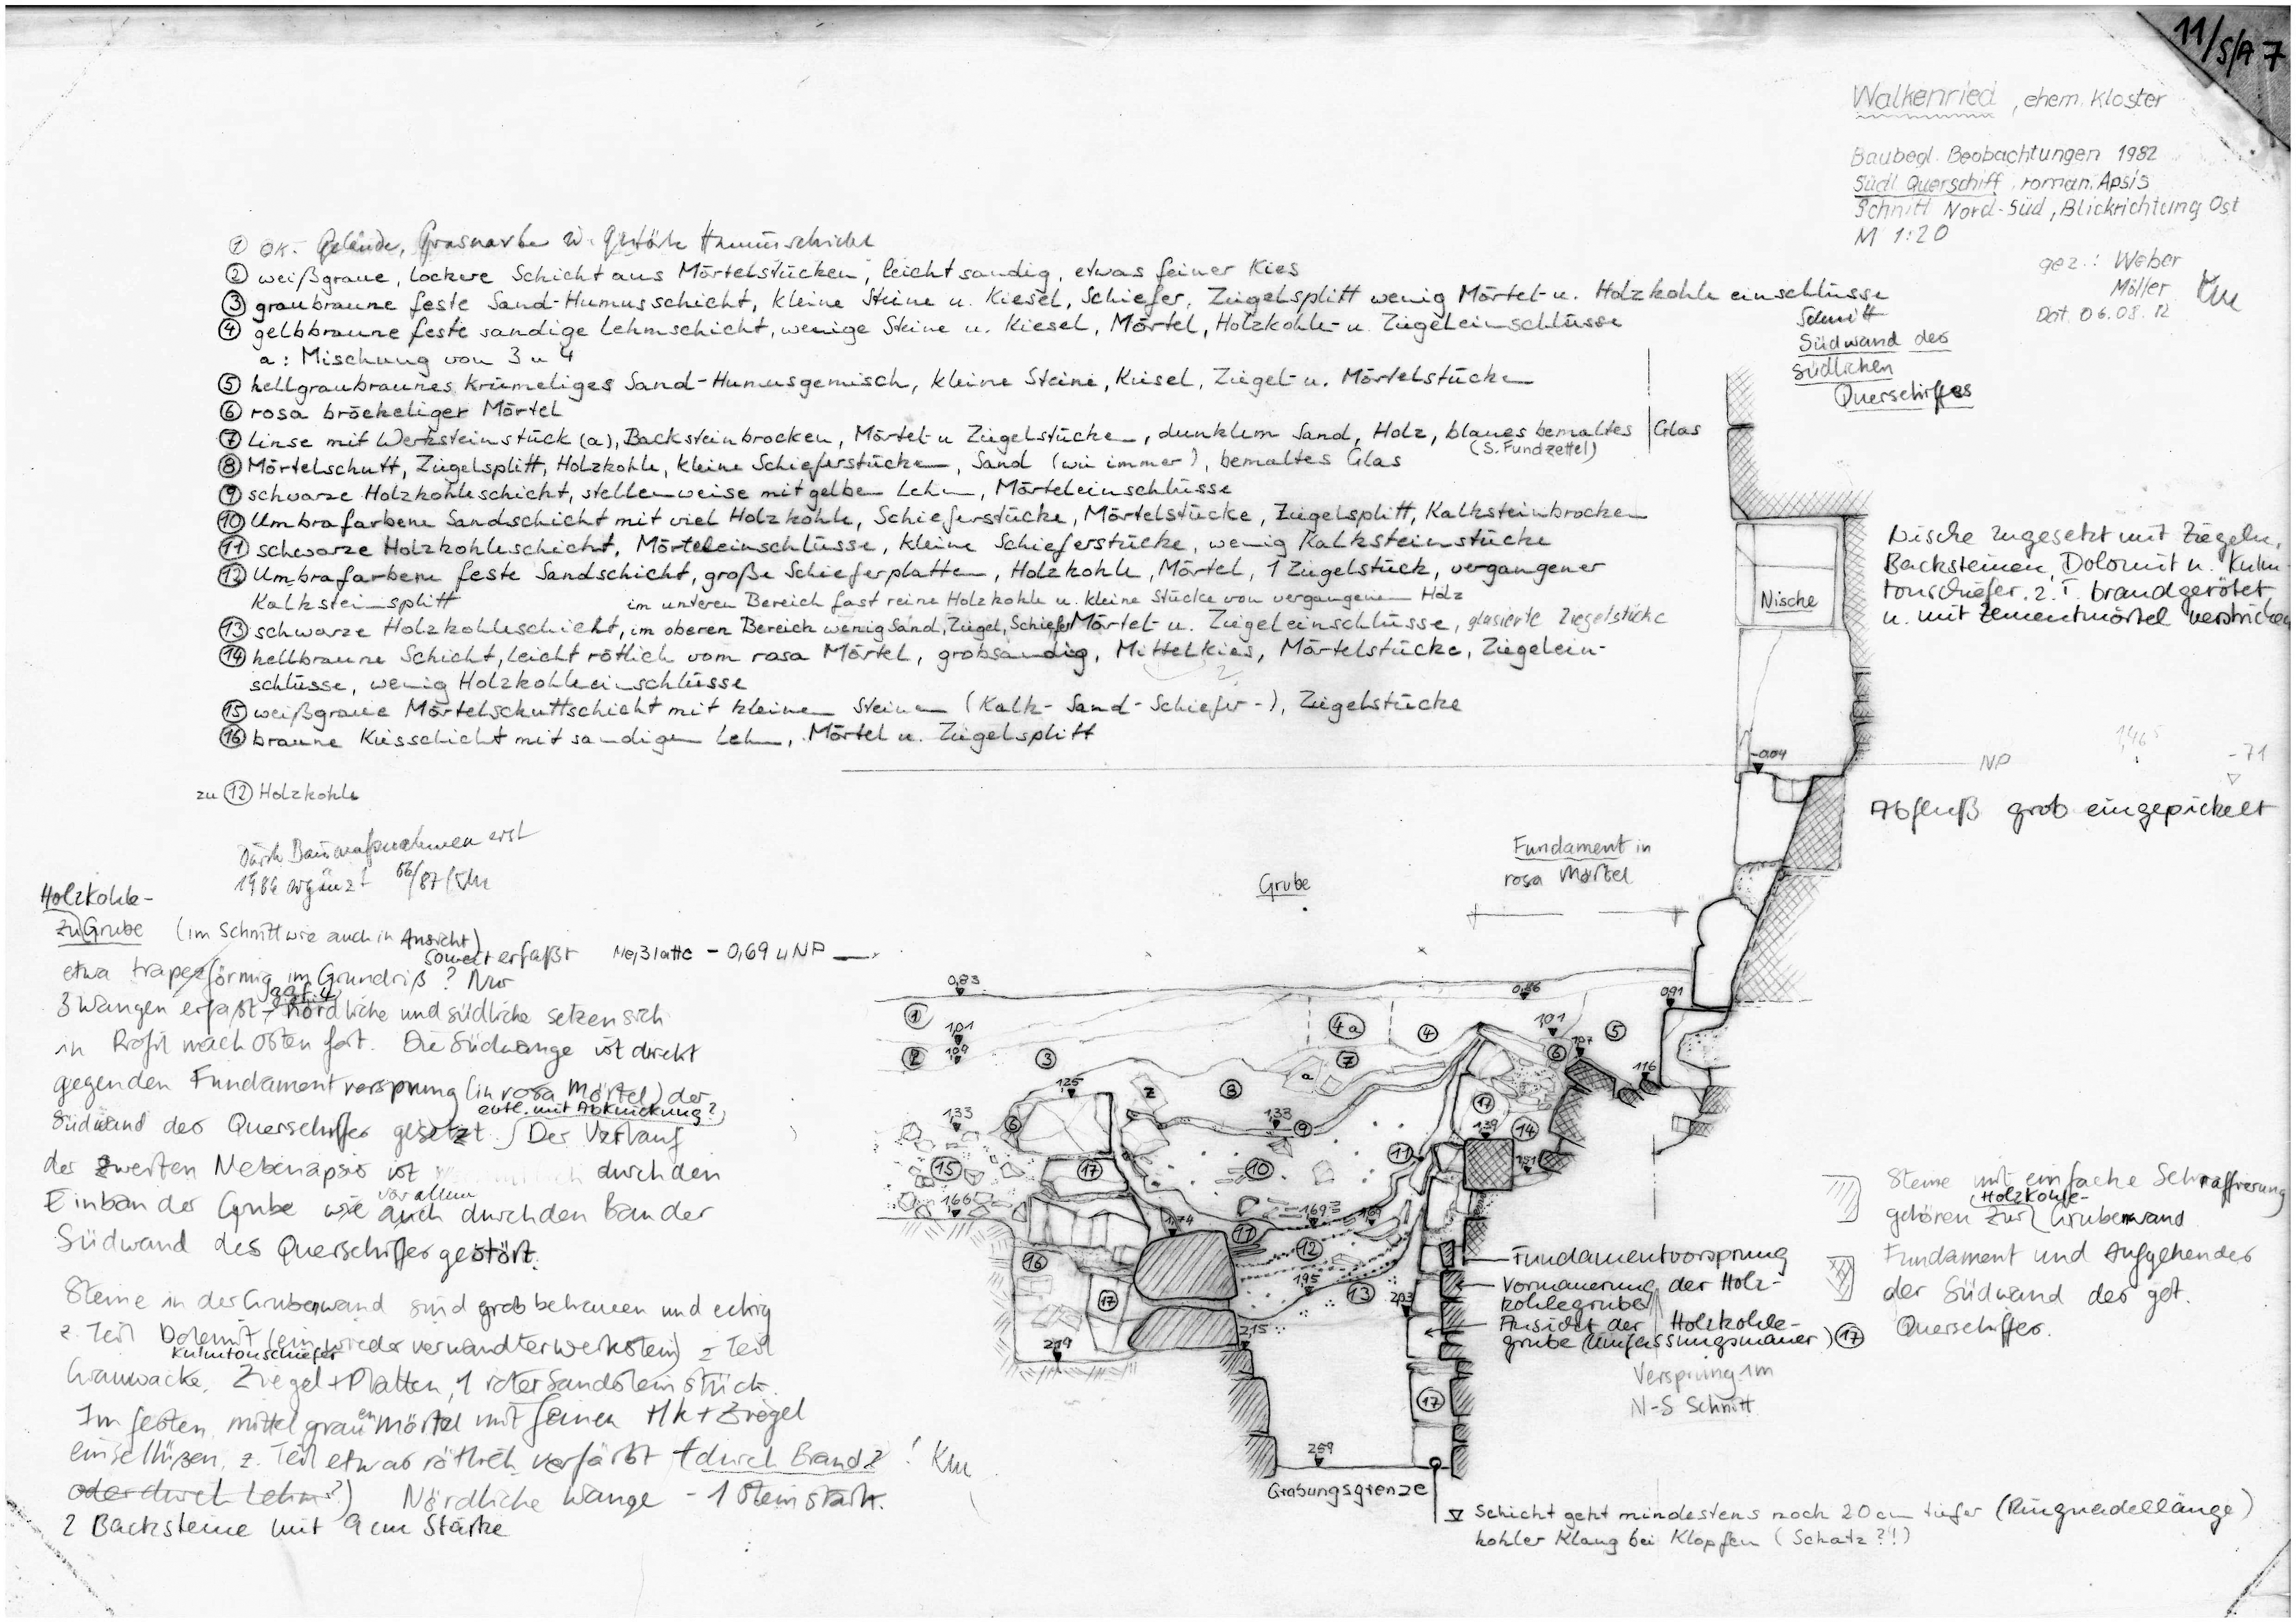 11/S/A 7
Walkenried, ehem. Kloster
Baubegl. Beobachtungen 1982
Südl. Querschiff, roman. Apsis
Schnitt Nord-Süd, Blickrichtung Ost
M 1:20
gez.: Weber
Möller
Dat. 06.08.
① OK. Gelände, Grasnarbe Humusschicht
② weißgraue, lockere Schicht aus Mörtelstücken, leicht sandig, etwas feiner Kies
③ graubraune feste Sand-Humusschicht, kleine Steine u. Kiesel, Schiefer, Ziegelsplitt wenig Mörtel- u. Holzkohleeinschlüsse
④ gelbbraune feste sandige Lehmschicht, wenige Steine u. Kiesel, Mörtel, Holzkohle- u. Ziegeleinschlüsse
a: Mischung von 3 u 4
⑤ hellgraubraunes krümeliges Sand-Humusgemisch, kleine Steine, Kiesel, Ziegel- u. Mörtelstücke
⑥ rosa bröckeliger Mörtel
⑦ Linse mit Werksteinstück (a), Backsteinbrocken, Mörtel- u Ziegelstücken, dunklem Sand, Holz, blaues bemaltes Glas
(S. Fundzettel)
⑧ Mörtelschutt, Ziegelsplitt, Holzkohle, kleine Schieferstücke, Sand (wie immer), bemaltes Glas
⑨ schwarze Holzkohleschicht, stellenweise mit gelben Lehm, Mörteleinschlüsse
⑩ Umbrafarbene Sandschicht mit viel Holzkohle, Schieferstücke, Mörtelstücke, Ziegelsplitt, Kalksteinbrocken
⑪ schwarze Holzkohleschicht, Mörteleinschlüsse, kleine Schieferstücke, wenig Kalksteinstücke
⑫ Umbrafarbene feste Sandschicht, große Schieferplatten, Holzkohle, Mörtel, 1 Ziegelstück, vergangener
Kalksteinsplitt im unteren Bereich fast reine Holzkohle u. kleine Stücke von vergangenem Holz
⑬ schwarze Holzkohleschicht, im oberen Bereich wenig Sand, Ziegel, Schiefer Mörtel- u. Ziegeleinschlüsse, glasierte Ziegelstücke
⑭ hellbraune Schicht, leicht rötlich vom rosa Mörtel, grobsandig, Mittelkies, Mörtelstücke, Ziegelein-
schlüsse, wenig Holzkohleeinschlüsse
⑮ weißgraue Mörtelschuttschicht mit kleinen Steinen (Kalk- Sand- Schiefer-), Ziegelstücke
⑯ braune Kiesschicht mit sandigem Lehm, Mörtel u. Ziegelsplitt
zu ⑫ Holzkohle
Schnitt
Südwand des
südlichen
Querschiffes
Nische
Nische zugesetzt mit Ziegeln,
Backsteinen, Dolomit u. Kulm-
tonschiefer, z. T. brandgerötet
u. mit Zementmörtel verstrichen
-0.04
NP
1,46⁵
-71
Abfluß grob eingepickelt
Durch Baumaßnahmen erst
1986 ergänzt
Holzkohle-
zu Grube (im Schnitt wie auch in Ansicht)
soweit erfaßt
etwa trapezförmig im Grundriß? Nur
ggf. 4
3 Wangen erfaßt - nördliche und südliche setzen sich
in Profil nach Osten fort. Die Südwange ist direkt
gegen den Fundamentvorsprung (in rosa Mörtel) der
evtl. mit Abknickung?
Südwand des Querschiffes gesetzt. Der Verlauf
der zweiten Nebenapsis ist durch den
Einbau der Grube wie auch durch den Bau der
vor allem
Südwand des Querschiffes gestört.
Steine in der Grubenwand sind grob behauen und eckig
z. Teil Dolomit (ein wieder verwandter Werkstein) z Teil
Kulmtonschiefer
Grauwacke, Ziegel + Platten, 1 roter Sandsteinstück.
Im festen, mittelgrauen Mörtel mit feinen Hk + Ziegel
einschlüßen, z. Teil etwas rötlich verfärbt (durch Brand? ! Km
oder durch Lehm?) Nördliche Wange - 1 Stein stark.
2 Backsteine mit 9 cm Stärke
Meßlatte - 0,69 u NP
Grube
Fundament in
rosa Mörtel
0,83
0,86
0,91
①
101
109
②
③
4a
④
101
⑤
107
⑥
116
⑦
a
Z
⑧
125
133
⑥
133
⑨
⑰
139
⑭
151
⑪
⑩
⑮
166
⑰
1,74
169
169
⑪
⑫
⑯
195
⑬
203
⑰
215
219
⑰
259
Grabungsgrenze
Fundamentvorsprung
Vormauerung der Holz-
kohlegrube
Ansicht der Holzkohle-
grube (Umfassungsmauer) ⑰
Versprung 1m
N-S Schnitt
Steine mit einfache Schraffierung
(Holzkohle-
gehören zur Grubenwand
Fundament und Aufgehendes
der Südwand des got.
Querschiffes.
Schicht geht mindestens noch 20 cm tiefer (Ringnadellänge)
hohler Klang bei Klopfen (Schatz?!)